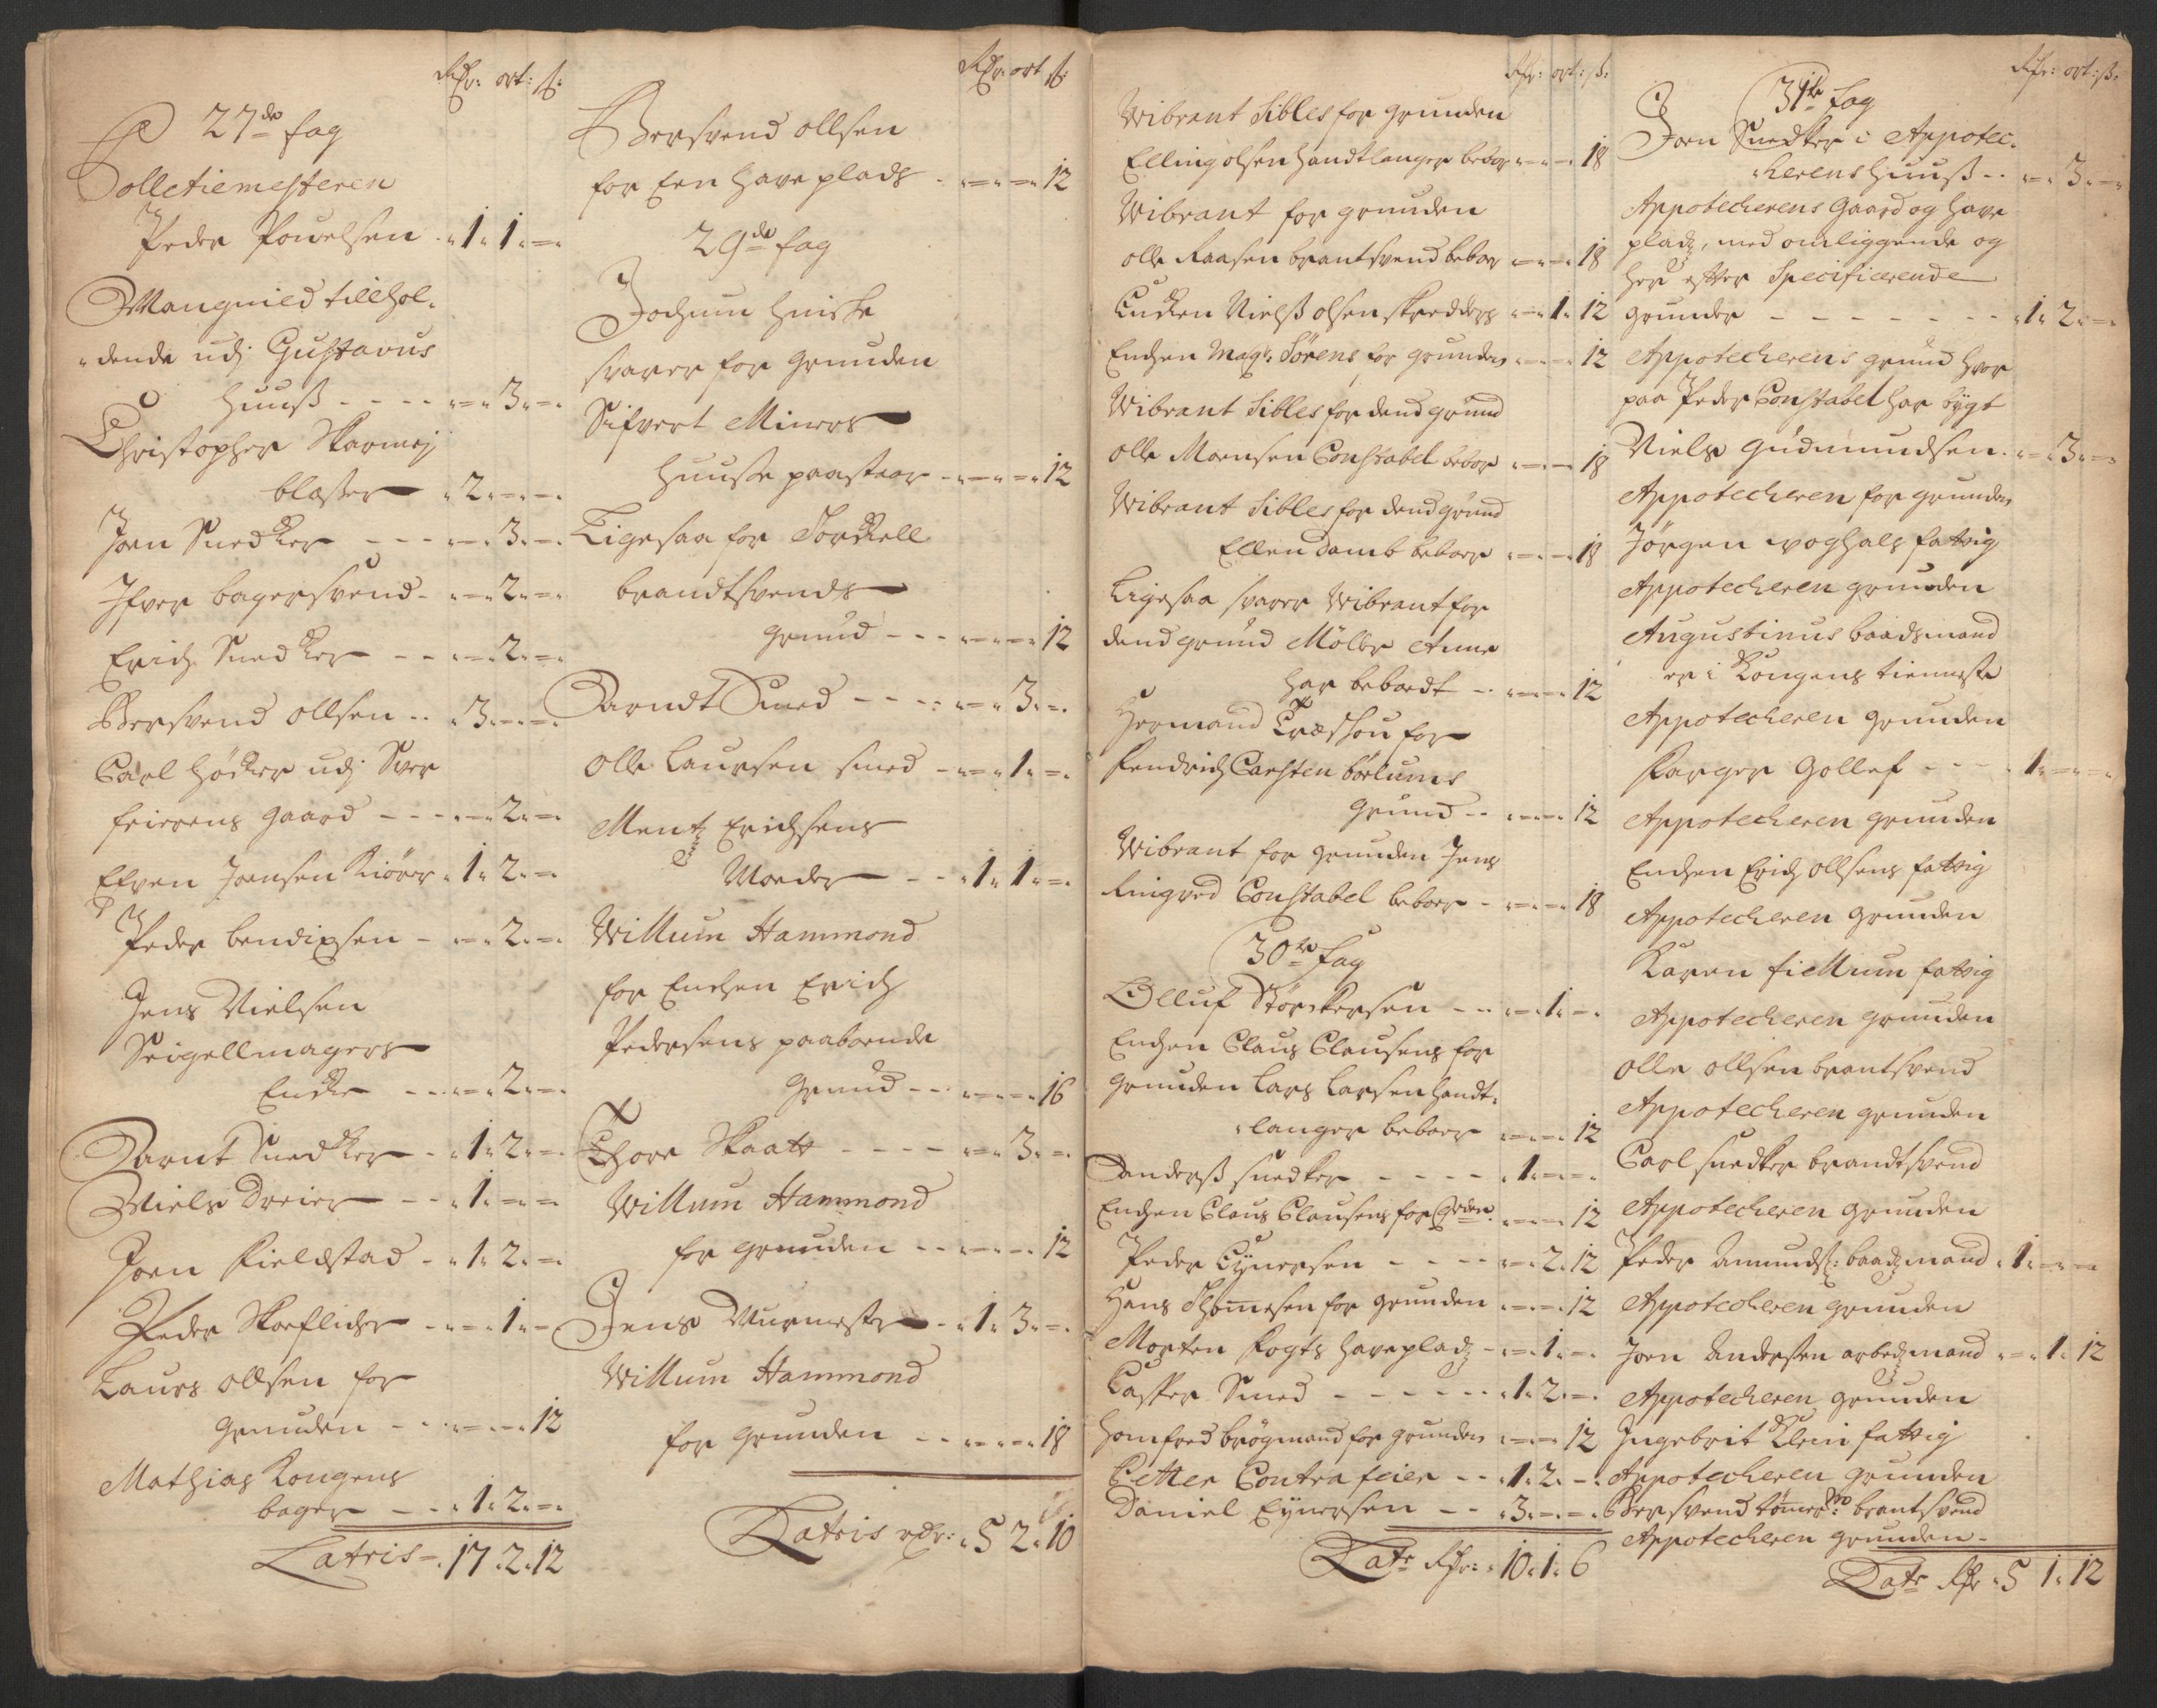 Rdr: ort: ß:
27de fag
Polletiemesteren
Peder Povelsen - 1 1 -
Mangnild tillhol-
dende udj Gustavus
huuß - - - - 3 -
Christopher Skarmej
blaßer 2 - -
Joen Snedker - - - 3 -
Ifver bagersvend - - 2 -
Erich Snedker - - - 2 -
Bersvend ollsen - - 3 - -
Carl höcker udj Svær
feierens gaard - - - 2 -
Efven Joensen Kiörer 1 2 -
Peder bendixsen - - 2 -
Jens Nielsen
Seigellmagers
Encke - - - 2 -
Barnt Snedker - 1 2 -
Niels Dreier - - 1 - -
Joen Fieldstad - 1 2 -
Peder Skoeflicher - - 1 -
Laurs ollsen for
grunden - - - 12
Mathias Kongens
bager - - 1 2 -
Latris - 17 2 12
Rdr: ort ß:
Bersvend ollsen
for Een have plads - - - 12
29de fag
Jochum hniske
svarer for grunden
Sifvert Miners
huuse paastaar - - - 12
Ligesaa for Torckell
brandtsvends
grund - - - - 12
Barndt Smed - - - 3 -
Olle Laursen smed - - 1 -
Mentz Erichsens
Moeder - - 1 1 -
Willum Hammond
for Enchen Erich
Pedersens paaboende
grund - - - 16
Thore Skaatt - - - - 3 -
Willum Hammond
for grunden - - - - 12
Jens Murmester - 1 3 -
Willum Hammond
for grunden - - - - 18
Latris rdr: 5 2 10
Rdr: ort: ß:
Wibrant Sibles for grunden
Elling olsen handtlanger beboer - - 18
Wibrant for grunden
olle Raasen brantsvend beboer - - 18
Encken Nielß olsen skredders - 1 12
Enchen Magr: Sörens for grunden - - 12
Wibrant Sibles for dend grund
olle Monsen Constabel beboer - - 18
Wibrant Sibles for dend grund
Ellen damb beboer - - 18
Ligesaa svarer Wibrant for
dend grund Möller Anne
har beboedt - - - 12
Hermand Træschou for
Fendrich Carsten börlums
grund - - - - 12
Wibrant for grunden Jens
Ringved Constabel beboer - - - 18
30te fag
Olluf Störckersen - - - 1 -
Enchen Claus Clausens for
grunden Lars Larsen handt-
langer beboer - - 12
Anderß snedker - - - - 1 - -
Enchen Claus Clausens for Grden: - - 12
Peder Eynersen - - - - 2 12
Hans Thomesen for grunden - - 12
Morten Fogts haveplads - - 1 -
Casper Smed - - - - - 1 2 -
homfred brögmand for grunden - - 12
Petter Contrafeier - - 1 2 -
Daniel Eynersen - - 3 - -
Latr Rdr: 10 1 6
Rdr: ort: ß:
31te fag
Joen Snedker i Appotec-
kerens huuß - - - 3 -
Appotecherens gaard og have
plads, med omliggende og
her efter Specificerende
grunder - - - - - - - 1 2 -
Appotecherens grund hvor
paa Peder Constabel har bygt
Niels gudmundsen - - 3 -
Appotecheren for grunden
Jörgen voghals fattig
Appotecheren grunden
Augustinus baadsmand
er i Kongens tienneste
Appotecheren grunden
Farger Gollef - - - 1 - -
Appotecheren grunden
Enchen Erich ollsens fattig
Appotecheren grunden
Karen fiellrum fattig
Appotecheren grunden
olle ollsen brantsvend
Appotecheren grunden
Carl snedker brandtsvend
Appotecheren grunden
Peder Amundß: baadzmand 1 - -
Appotecheren grunden
Joen Andersen arbedzmand - 1 12
Appotecheren grunden
Ingebrit Klein fattig
Appotecheren grunden
Bersvend tömerm: brantsvend
Appotecheren grunden -
Latr Rdr 5 1 12